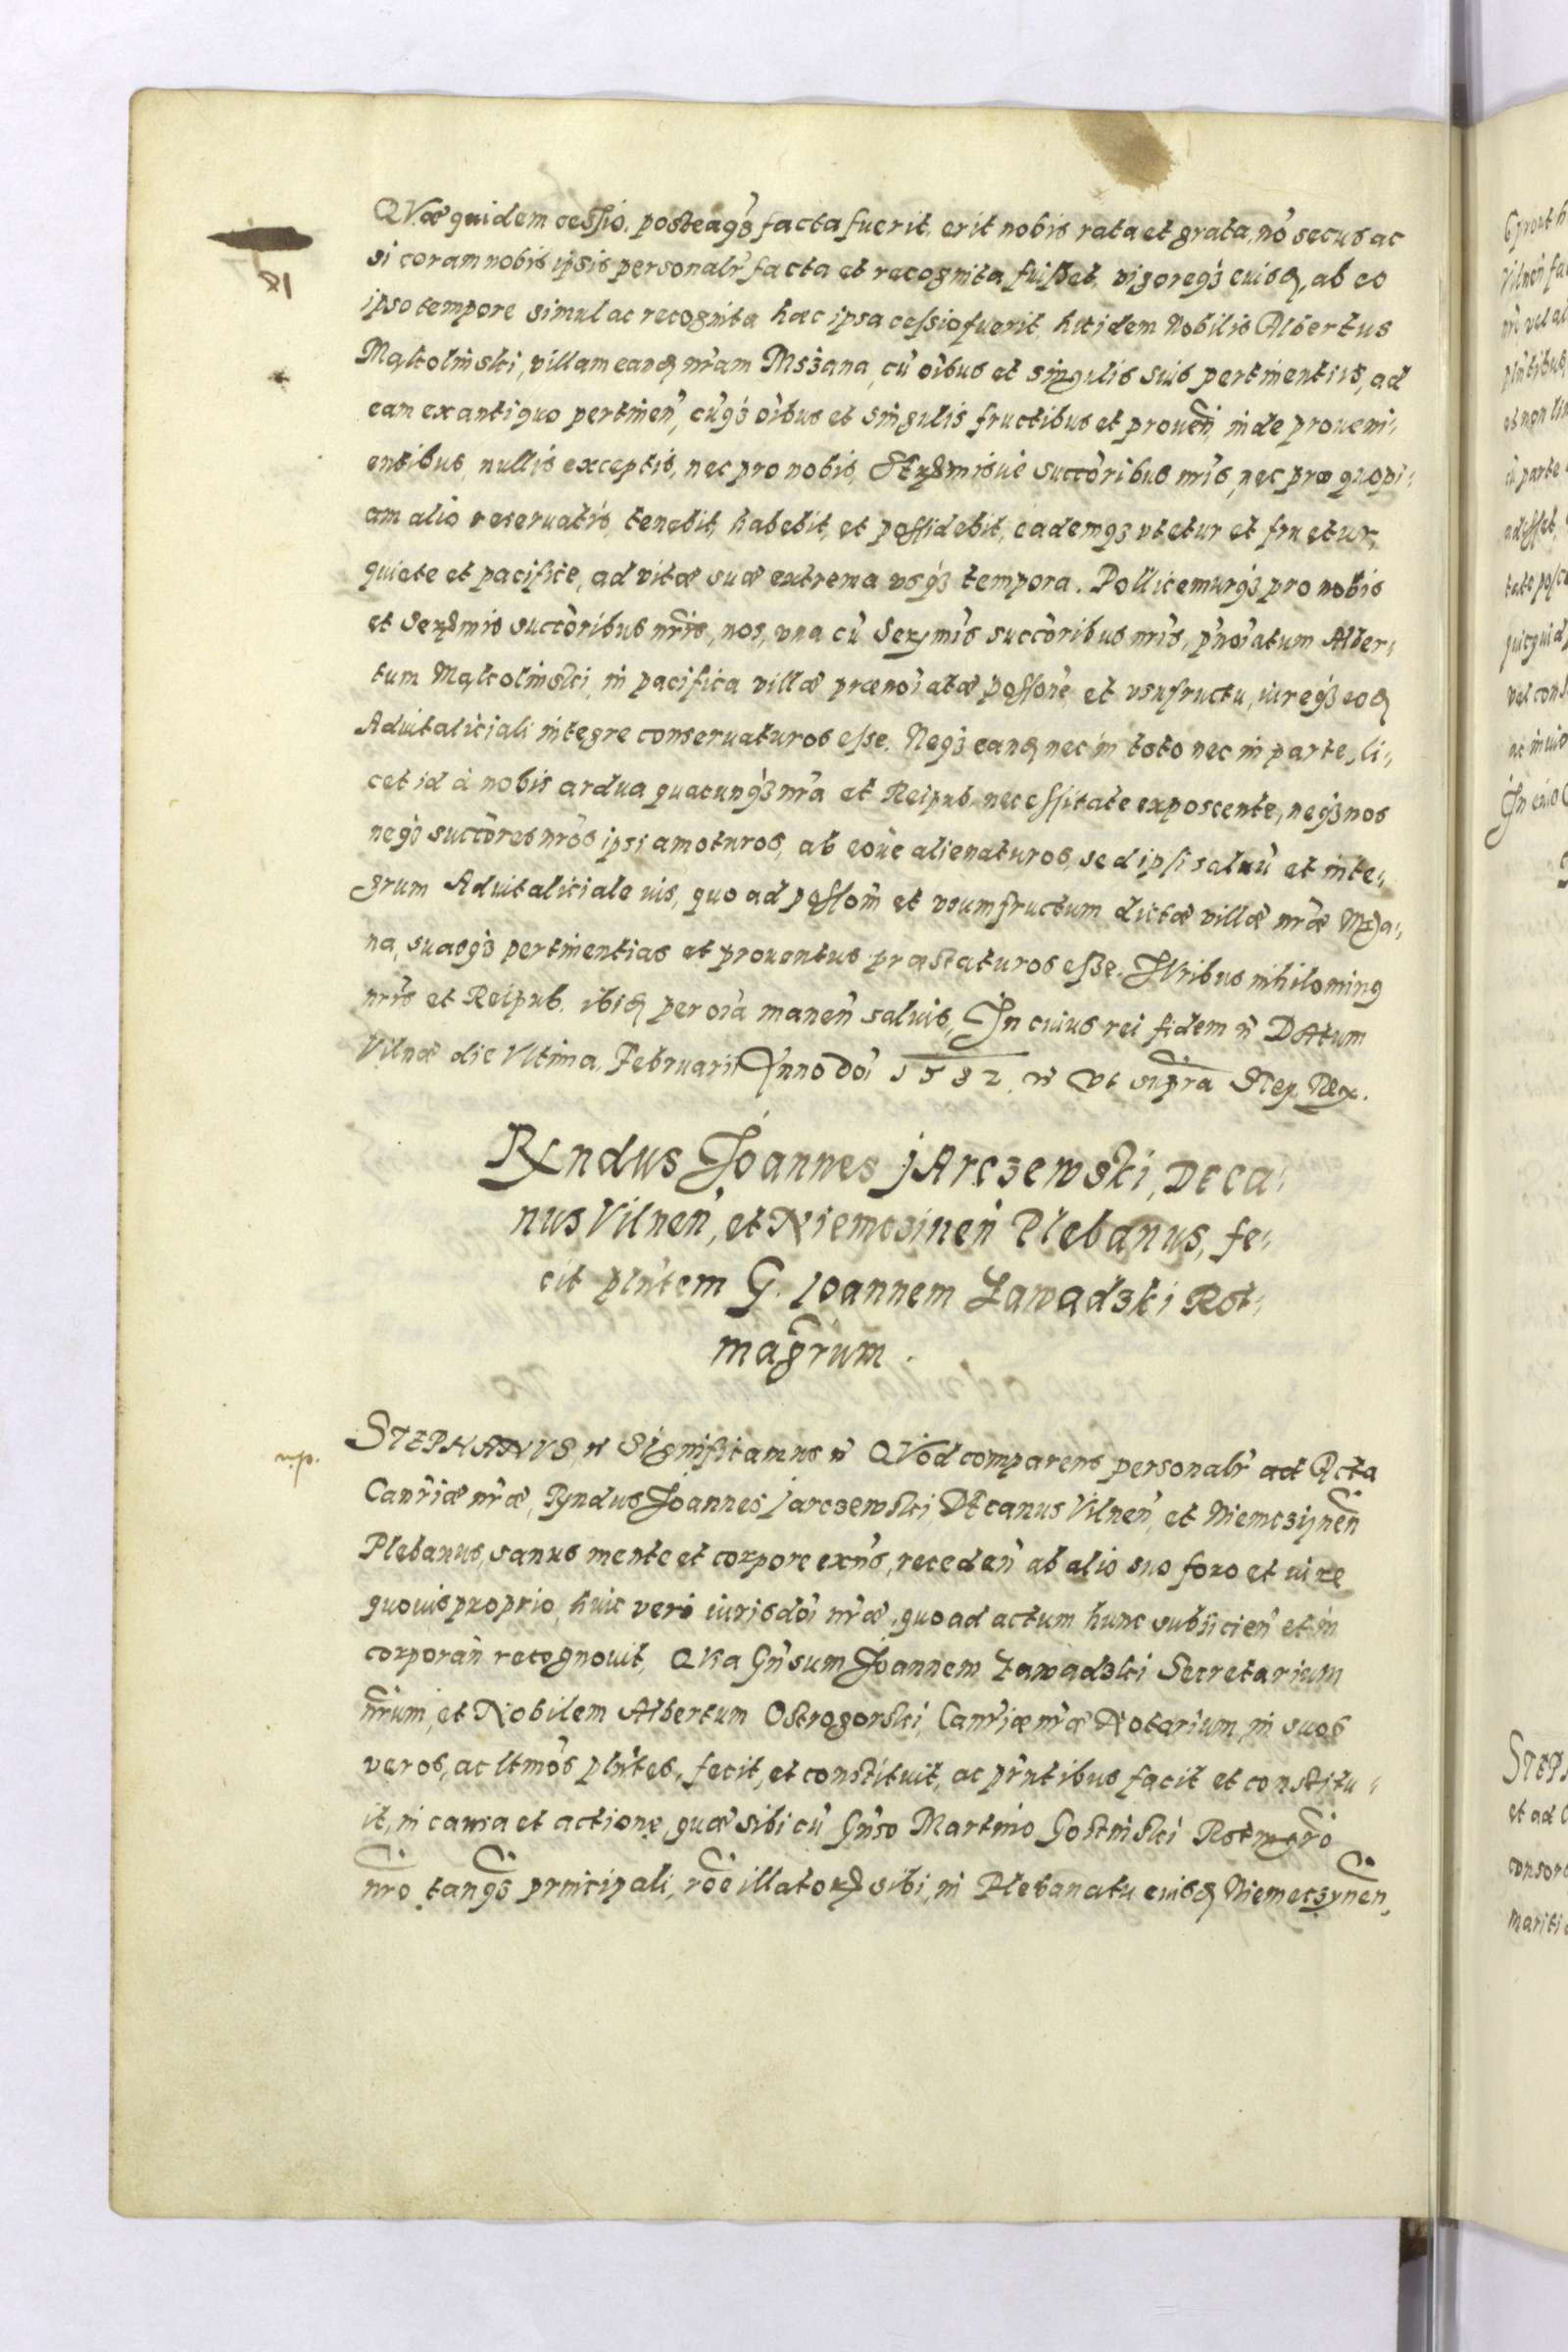 QVæ quidem cessio, posteaq̃ꝫ facta fuerit, erit nobis rata et grata, nõ secus ac
si coram nobis ipsis personalr̃ facta et recognita fuisset, vigoreqꝫ euisd, ab eo
ipso tempore simul ac recognita hæc ipsa cessio fuerit, hic idem Nobilis Albertus
Mąkolinski, villam eand nr̃am Mszana, cũ oĩbus et singulis suis pertinentiis, ad
eam ex antiquo pertineñ, cũqꝫ oĩbus et singulis fructibus et proueñ, inde proueni-
entibus, nullis exceptis, nec pro nobis, Serꝫmisue succõribus nr̃is, nec pro quopi-
am alio reseruatis, tenebit, habebit, et possidebit, eademqꝫ vtetur et fruetur,
quiete et pacifice, ad vitæ suæ extrema vsqꝫ tempora. Pollicemurqꝫ pro nobis
et Serꝫmis succõribus nr̃is, nos, vna cũ Serꝫmis succõribus nr̃is, p̃noĩatum Alber-
tum Mąkolinski, in pacifica villæ prænoĩatæ possõne, et vsufructu, iureqꝫ eod
Aduitaliciali integre conseruaturos esse. Neqꝫ eand nec in toto nec in parte, li-
cet id à nobis ardua quacunqꝫ nr̃a et Reipub. necessitate exposcente, neqꝫ nos
neqꝫ succõres nr̃os ipsi amoturos, ab eoue alienaturos, sed ipsi saluũ et inte-
grum Aduitaliciale ius, quo ad possõm et vsumfructum dictæ villæ nr̃æ Msza-
na, suasqꝫ pertinentias et prouentus præstaturos esse. IVribus nihilominꝰ
nr̃is et Reipub. ibid per oĩa maneñ saluis, In cuius rei fidem ñ DAtum
Vilnæ die Vltima Februarii Anno Doĩ 1582 ñ vt supra Step. Rex.
Rṇdus Joannes jArczewski, Deca-
nus Vilneñ, et Niemczineñ Plebanus, fe-
cit plñtem G. Ioannem Zawadzki Rot-
magr̃um.
STEPHANVS ñ Significamus ñ QVod comparens personalr̃ ad Acta
Canr̃iæ nr̃æ, Rṇdus Joannes Jarczewski, DEcanus Vilneñ, et Niemczÿneñ
Plebanus, sanus mente et corpore exñs, recedeñ ab alio suo foro et iure
quouis proprio, huic vero iurisdoĩ nr̃æ, quoad actum hunc subijcieñ et in
corporañ recognouit, QVia Gñsum Joannem Zawadzki Secretarium
nr̃um, et Nobilem Albertum Ostrogorski, Canr̃iæ nr̃æ Notarium, in suos
veros, ac ltm̃os plñtes, fecit, et constituit, ac pr̃ntibus facit et constitu-
it, in causa et actione, quæ sibi cũ Gñso Martino Gostinski Rotmgr̃o
nr̃o, tanqꝫ principali, rõe illatorꝫ sibi, in Plebanatu euisd Niemeczyneñ,